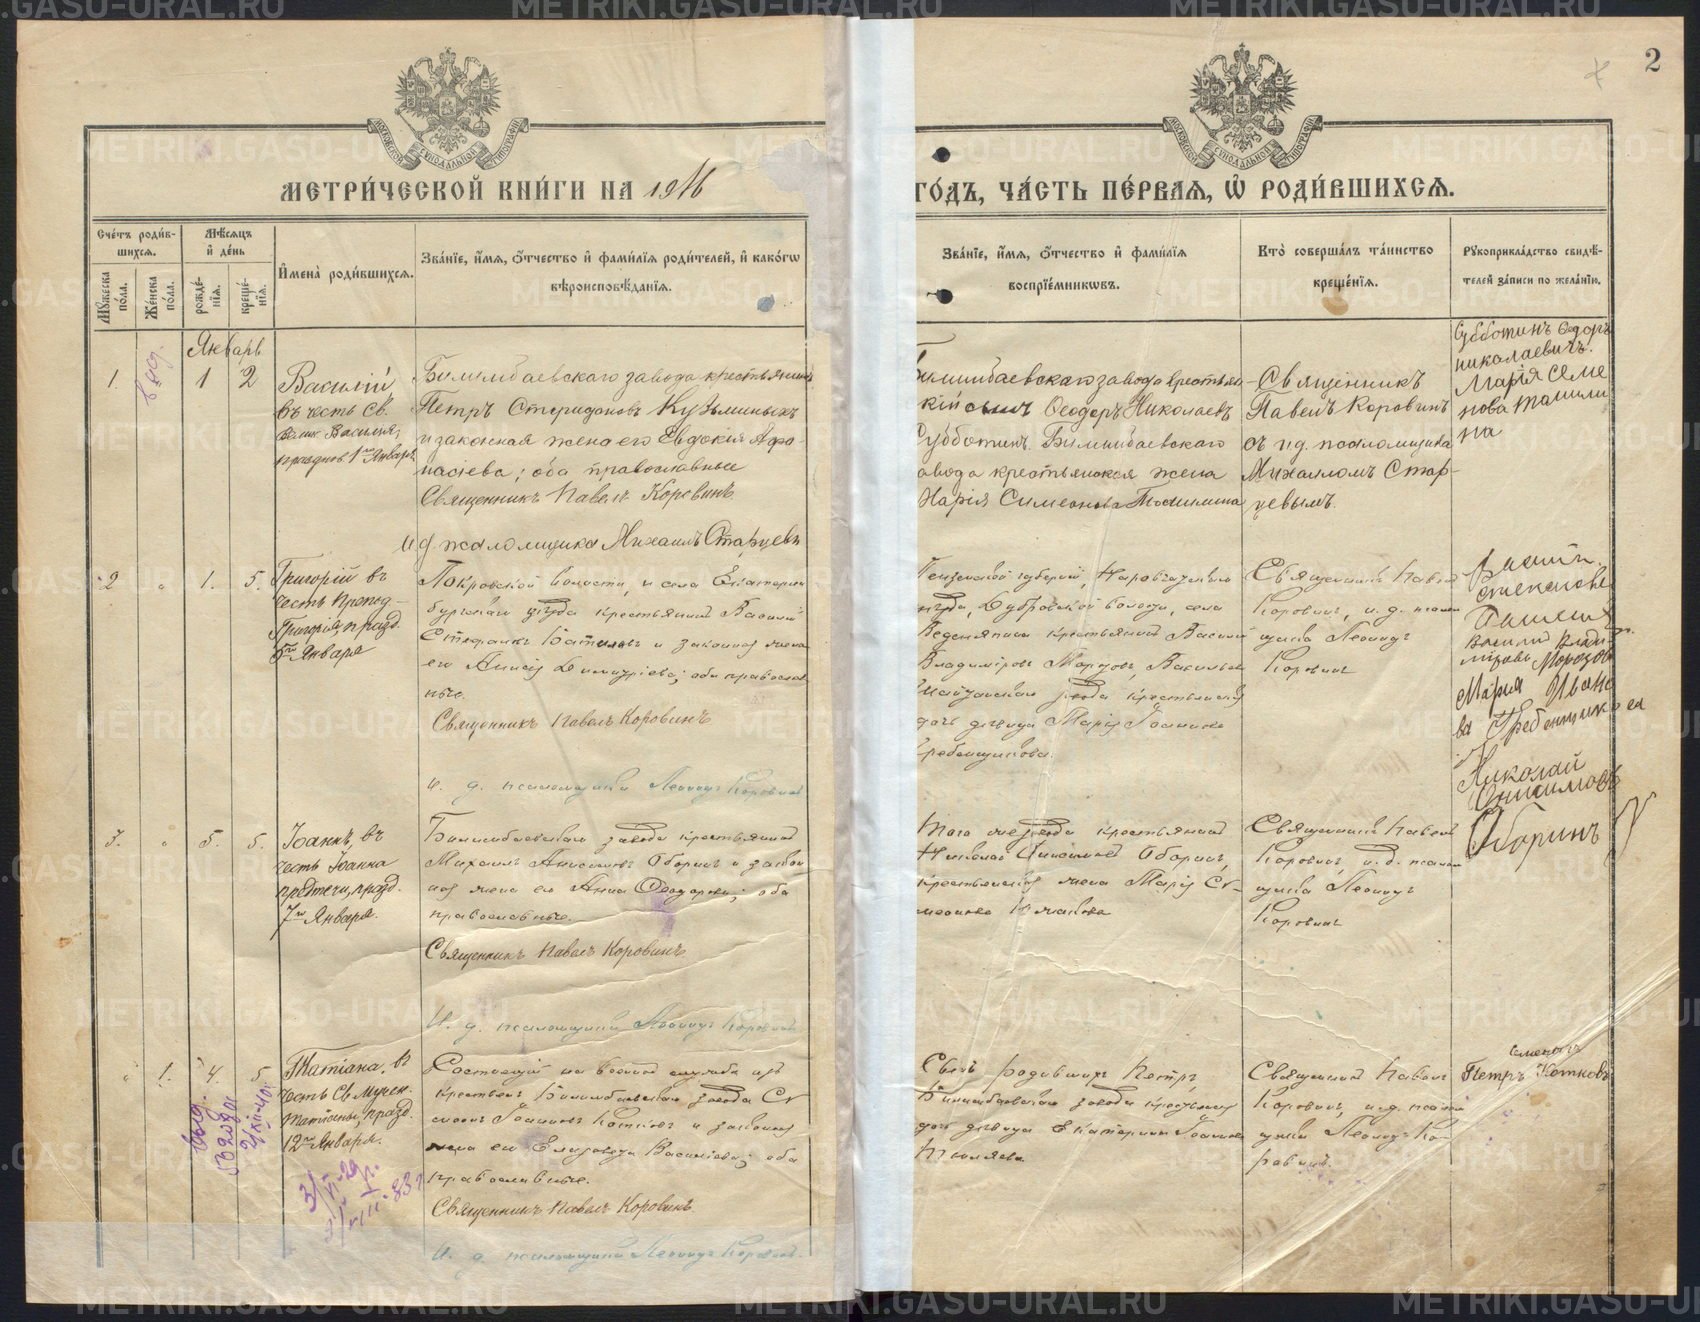 2
МЕТРИ́ЧЕСКОЙ КНИ́ГИ НА 1916
ГО́ДЪ, ЧА́СТЬ ПЕ́РВАЯ, Ѡ҆ РОДИ́ВШИХСѦ.
Сче́тъ роди́в-
шихся.
Мужеска по́ла.
Же́нска по́ла.
Мѣ́сяцъ
и҆ де́нь
рожде́-
нїя.
креще́-
нїя.
И҆мена̀ роди́вшихся.
Зва́нїе, и҆́мя, ѻ҆́тчество и҆ фами́лїя роди́телей, и҆ како́гѡ
вѣроисповѣ́данїя.
Зва́нїе, и҆́мя, ѻ҆́тчество и҆ фами́лїя
воспрїе́мникѡвъ.
Кто̀ соверша́лъ та́инство
креще́нїя.
Рукоприкла́дство свидѣ́-
телей за́писи по жела́нїю.
Январь
1. 1 2
Василій
въ честь Св.
Велик. Василія,
празднов. 1го Января
Билимбаевскаго завода крестьянинъ
Петръ Спиридоновъ Кузьминыхъ
и законная жена его Евдокія Афа-
насіева; оба православные
Священникъ Павелъ Коровинъ
И д. псаломщика Михаилъ Старцевъ
Билимбаевскаго завода крестьян
скій сынъ Ѳеодоръ Николаевъ
Субботинъ. Билимбаевскаго
завода крестьянская жена
Марія Симеонова Томилина
Священникъ
Павелъ Коровинъ
съ и д. псаломщика
Михаиломъ Стар-
цевымъ.
Субботинъ Федоръ
николаевичъ.
Марія Семе
нова томили
на
2 " 1. 5.
Григорій въ
честь Препод-
Григорія, празд.
5го Января
Покровской волости, и села Екатерин
бургскаго уѣзда крестьянинъ Василій
Стефановъ и законная жена
его Анисія Димитріева; оба православ
ные.
Священникъ Павелъ Коровинъ
и. д. псаломщика Леонидъ Коровинъ
Пензенской губерніи, Наровчатскаго
уѣзда, Дубровской волости, села
крестьянинъ Василій
Владиміровъ Морозовъ, Васильево
Шайтанскаго завода крестьянская
дочь дѣвица Марія Іоаннова
Гребенщикова.
Священникъ Павелъ
Коровинъ, и. д. псалом
щика Леонидъ
Коровинъ
Василій
Василий Влади
міровъ Морозовъ
Мария Ивано
ва Гребенщикова
3. " 5. 5.
Іоаннъ, въ
честь Іоанна
предтечи, празд.
7го Января.
Билимбаевскаго завода крестьянинъ
Михаилъ Анисимовъ Оборинъ и закон
ная жена его Анна Ѳеодорова; оба
православные.
Священникъ Павелъ Коровинъ
И. д. псаломщика Леонидъ Коровинъ
Того же завода крестьянинъ
Николай Анисимовъ Оборинъ,
крестьянская жена Марія Си-
меонова
Священникъ Павелъ
Коровинъ, и. д. псалом
щика Леонидъ
Коровинъ
Николай
Онисимовъ
Оборинъ
" 1. 4. 5
Татіана, въ
честь Св. Мучен.
Татіаны, празд.
12го Января.
Состоящій на военной службѣ изъ
крестьянъ Билимбаевскаго завода Си
меонъ Іоанновъ Котковъ и законная
жена его Елизавета Василіева; оба
православные.
Священникъ Павелъ Коровинъ
И. д. псаломщика Леонидъ Коровинъ.
Сынъ Петръ,
Билимбаевскаго завода крестьянская
дочь дѣвица Екатерина Іоаннова
Священникъ Павелъ
Коровинъ, и. д. псалом
щика Леонидъ Ко-
ровинъ.
Петръ Котковъ
METRIKI.GASO-URAL.RU